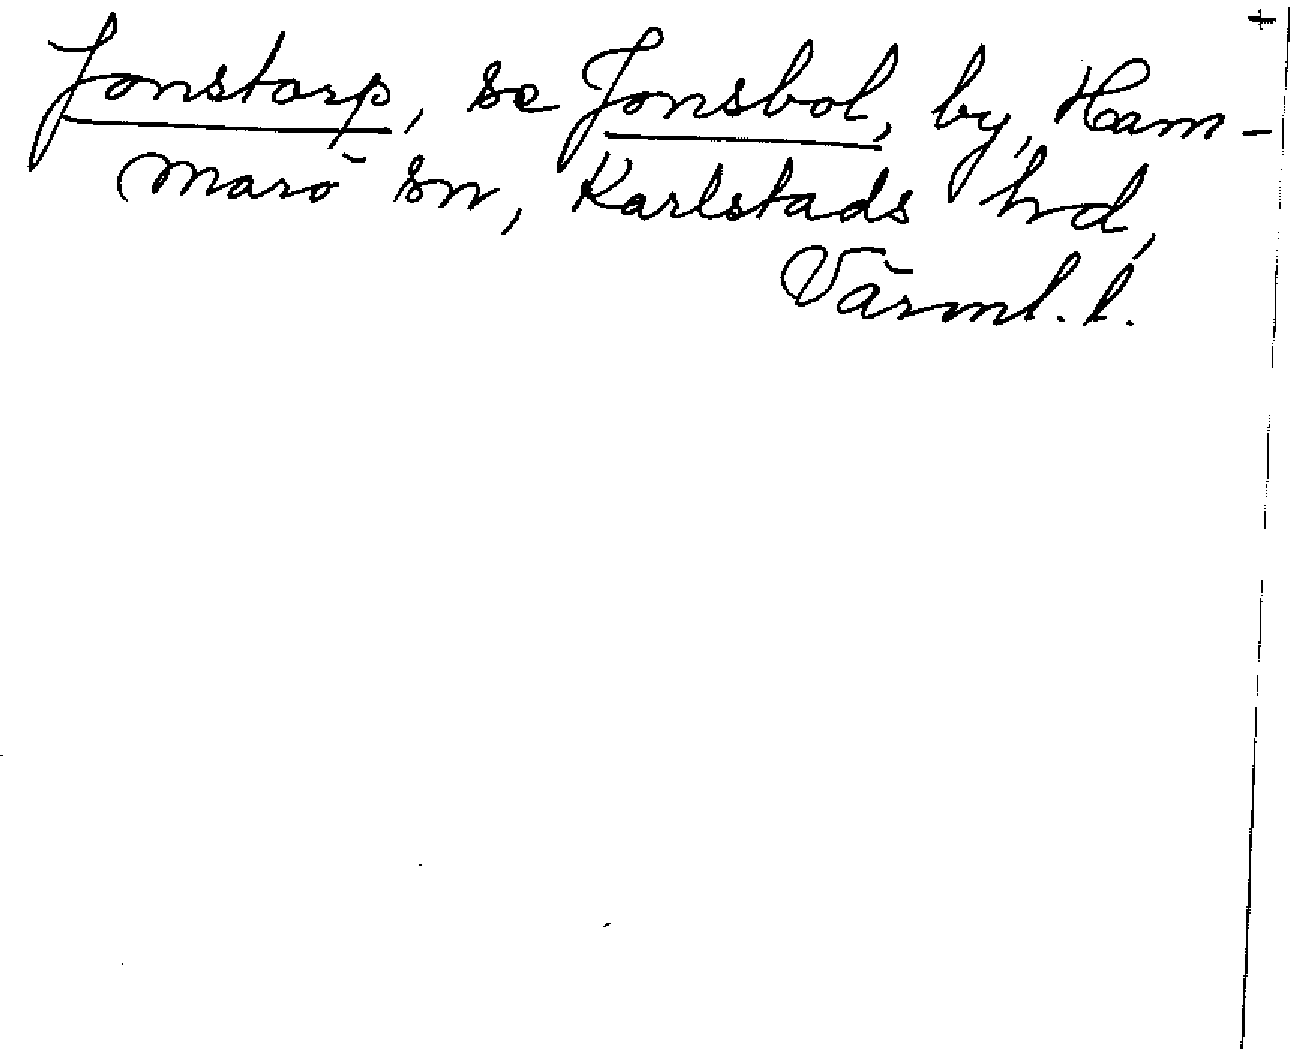 Jonstorp, se Jonsbol, by, Ham-
marö sn, Karlstads hd,
Värml. l.